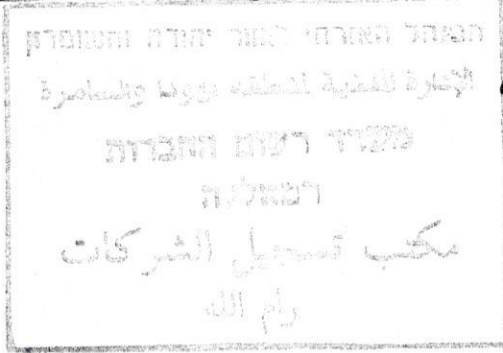 המנהל האזרחי לאזור יהודה והשומרון
الإدارة المدنية لمنطقة يهودا والسامرة
משרד רשום החברות
רמאללה
مكتب تسجيل الشركات
رام الله